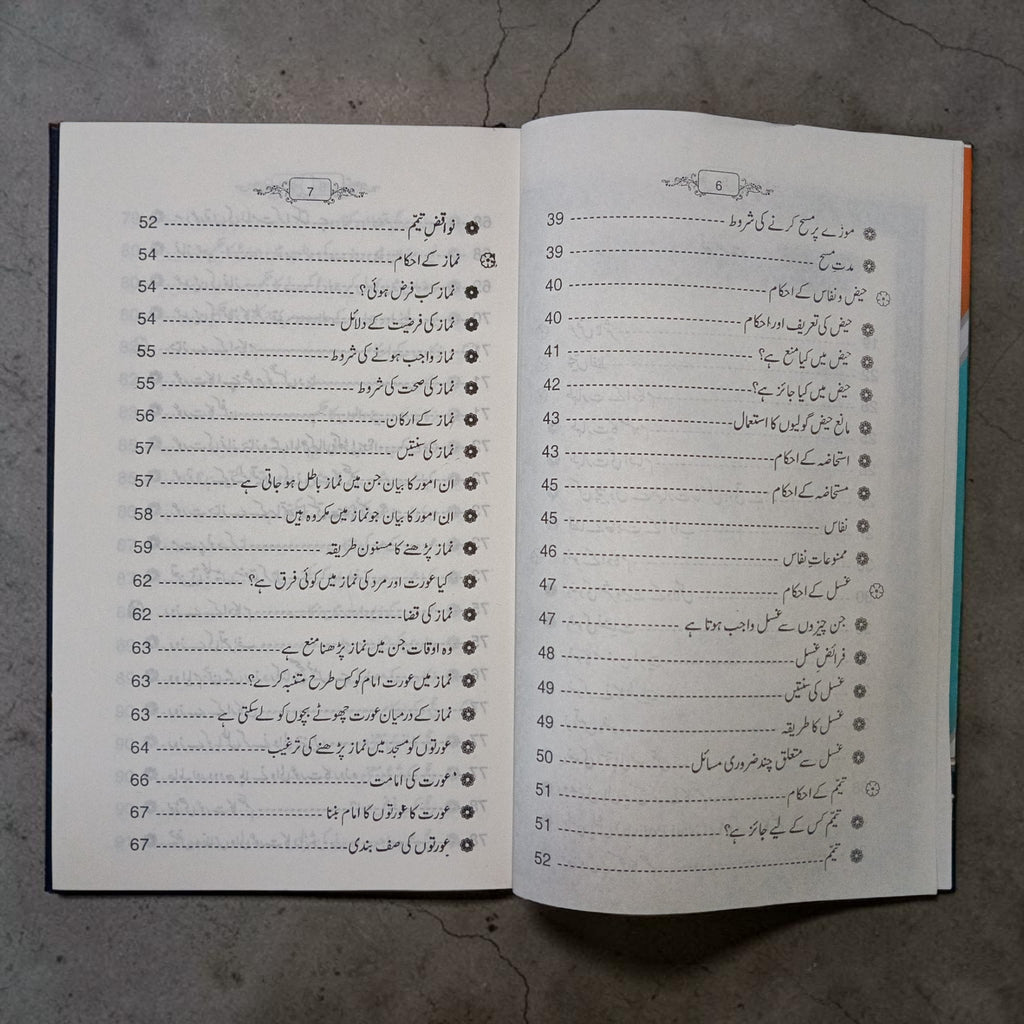 6
موزے پر مسح کرنے کی شروط 39
مدتِ مسح 39
حیض و نفاس کے احکام 40
حیض کی تعریف اور احکام 40
حیض میں کیا منع ہے؟ 41
حیض میں کیا جائز ہے؟ 42
مانع حیض گولیوں کا استعمال 43
استحاضہ کے احکام 43
مستحاضہ کے احکام 45
نفاس 45
ممنوعاتِ نفاس 46
غسل کے احکام 47
جن چیزوں سے غسل واجب ہوتا ہے 47
فرائض غسل 48
غسل کی سنتیں 49
غسل کا طریقہ 49
غسل سے متعلق چند ضروری مسائل 50
تیمّم کے احکام 51
تیمّم کس کے لیے جائز ہے؟ 51
تیمّم 52
7
نواقضِ تیمّم 52
نماز کے احکام 54
نماز کب فرض ہوئی؟ 54
نماز کی فرضیت کے دلائل 54
نماز واجب ہونے کی شروط 55
نماز کی صحت کی شروط 55
نماز کے ارکان 56
نماز کی سنتیں 57
ان امور کا بیان جن میں نماز باطل ہو جاتی ہے 57
ان امور کا بیان جو نماز میں مکروہ ہیں 58
نماز پڑھنے کا مسنون طریقہ 59
کیا عورت اور مرد کی نماز میں کوئی فرق ہے؟ 62
نماز کی قضا 62
وہ اوقات جن میں نماز پڑھنا منع ہے 63
نماز میں عورت امام کو کس طرح متنبہ کرے؟ 63
نماز کے درمیان عورت چھوٹے بچوں کو لے سکتی ہے 63
عورتوں کو مسجد میں نماز پڑھنے کی ترغیب 64
عورت کی امامت 66
عورت کا عورتوں کا امام بننا 67
عورتوں کی صف بندی 67